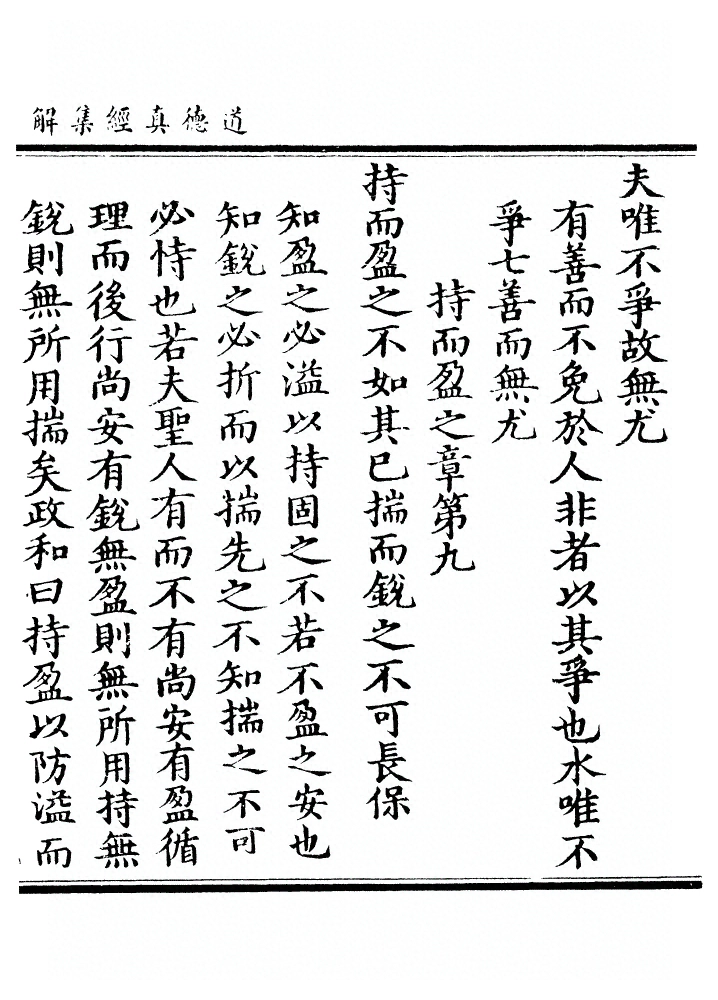 道德真經集解
夫唯不爭故無尤
有善而不免於人非者以其爭也水唯不
爭七善而無尤
持而盈之章第九
持而盈之不如其已揣而銳之不可長保
知盈之必溢以持固之不若不盈之安也
知銳之必折而以揣先之不知揣之不可
必恃也若夫聖人有而不有尚安有盈循
理而後行尚安有銳無盈則無所用持無
銳則無所用揣矣政和曰持盈以防溢而